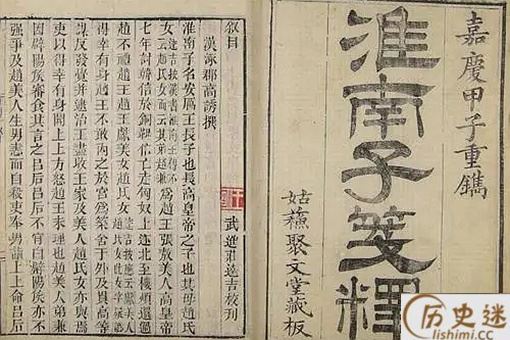 嘉慶甲子重鐫
淮南子箋釋
姑蘇聚文堂藏板
叙目
武進莊逵吉校刊
漢涿郡高誘撰
淮南子名安厲王長子也長高皇帝之子也其母趙氏
女為趙王張敖美人高皇帝
七年討韓信於銅鞮信亡走匈奴上遂北至樓煩還過
趙不禮趙王趙王獻美女趙氏女
得幸有身趙王不敢內之於宮為築舍於外及貫高等
謀反發覺并逮治王盡收王家及美人趙氏女亦與焉
吏以得幸有身聞上上方怒趙王未理也趙美人弟兼
因辟陽侯審食其言之呂后呂后不肯白辟陽侯亦不
强爭及趙美人生男恚而自殺吏奉男詣上上命呂后
历史迷
lishimi.cc